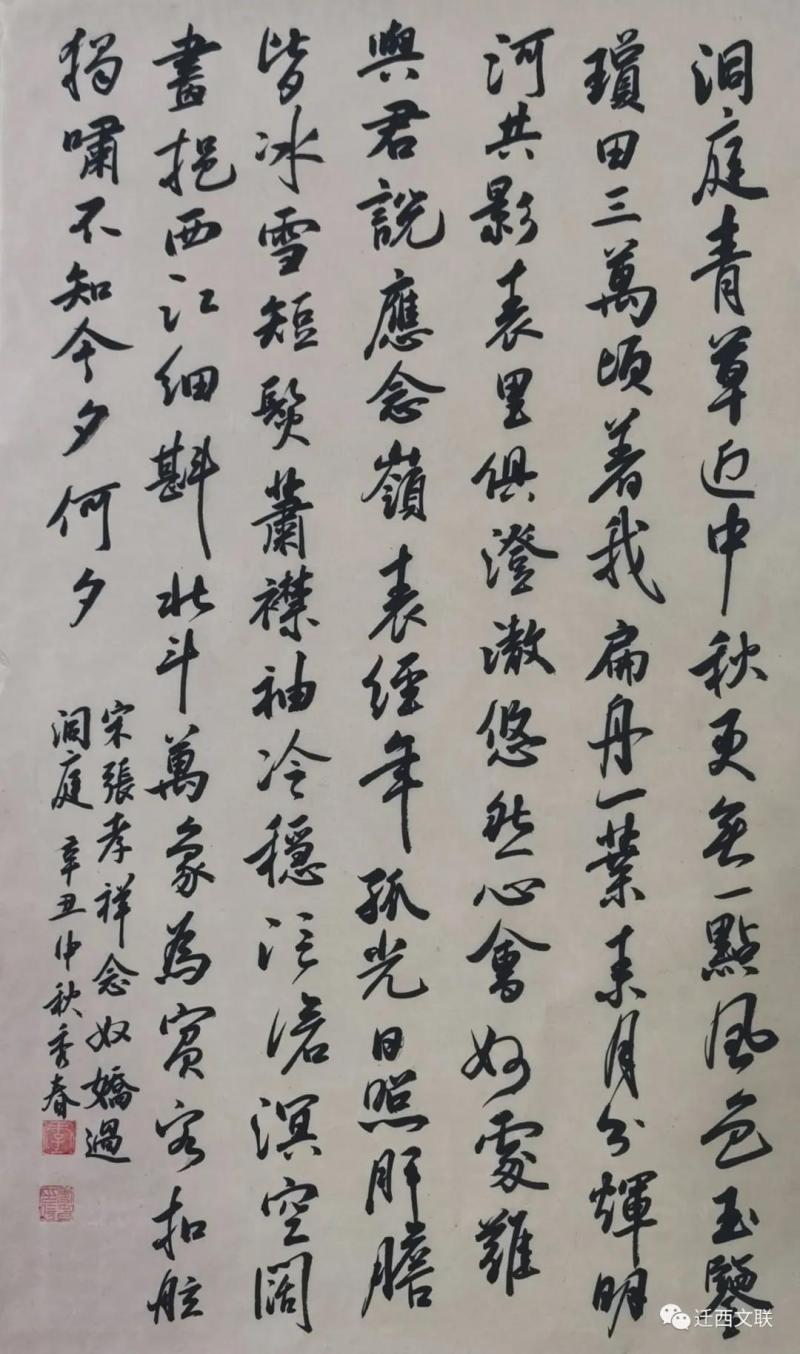 洞庭青草近中秋更無一點風色玉鑒
瓊田三萬頃著我扁舟一葉素月分輝明
河共影表里俱澄澈悠然心會妙處難
與君說應念嶺表經年孤光自照肝膽
皆冰雪短髮蕭襟袖冷穩泛滄溟空闊
盡挹西江細斟北斗萬象為賓客扣舷
獨嘯不知今夕何夕
宋張孝祥念奴嬌過
洞庭 辛丑中秋秀春
迁西文联